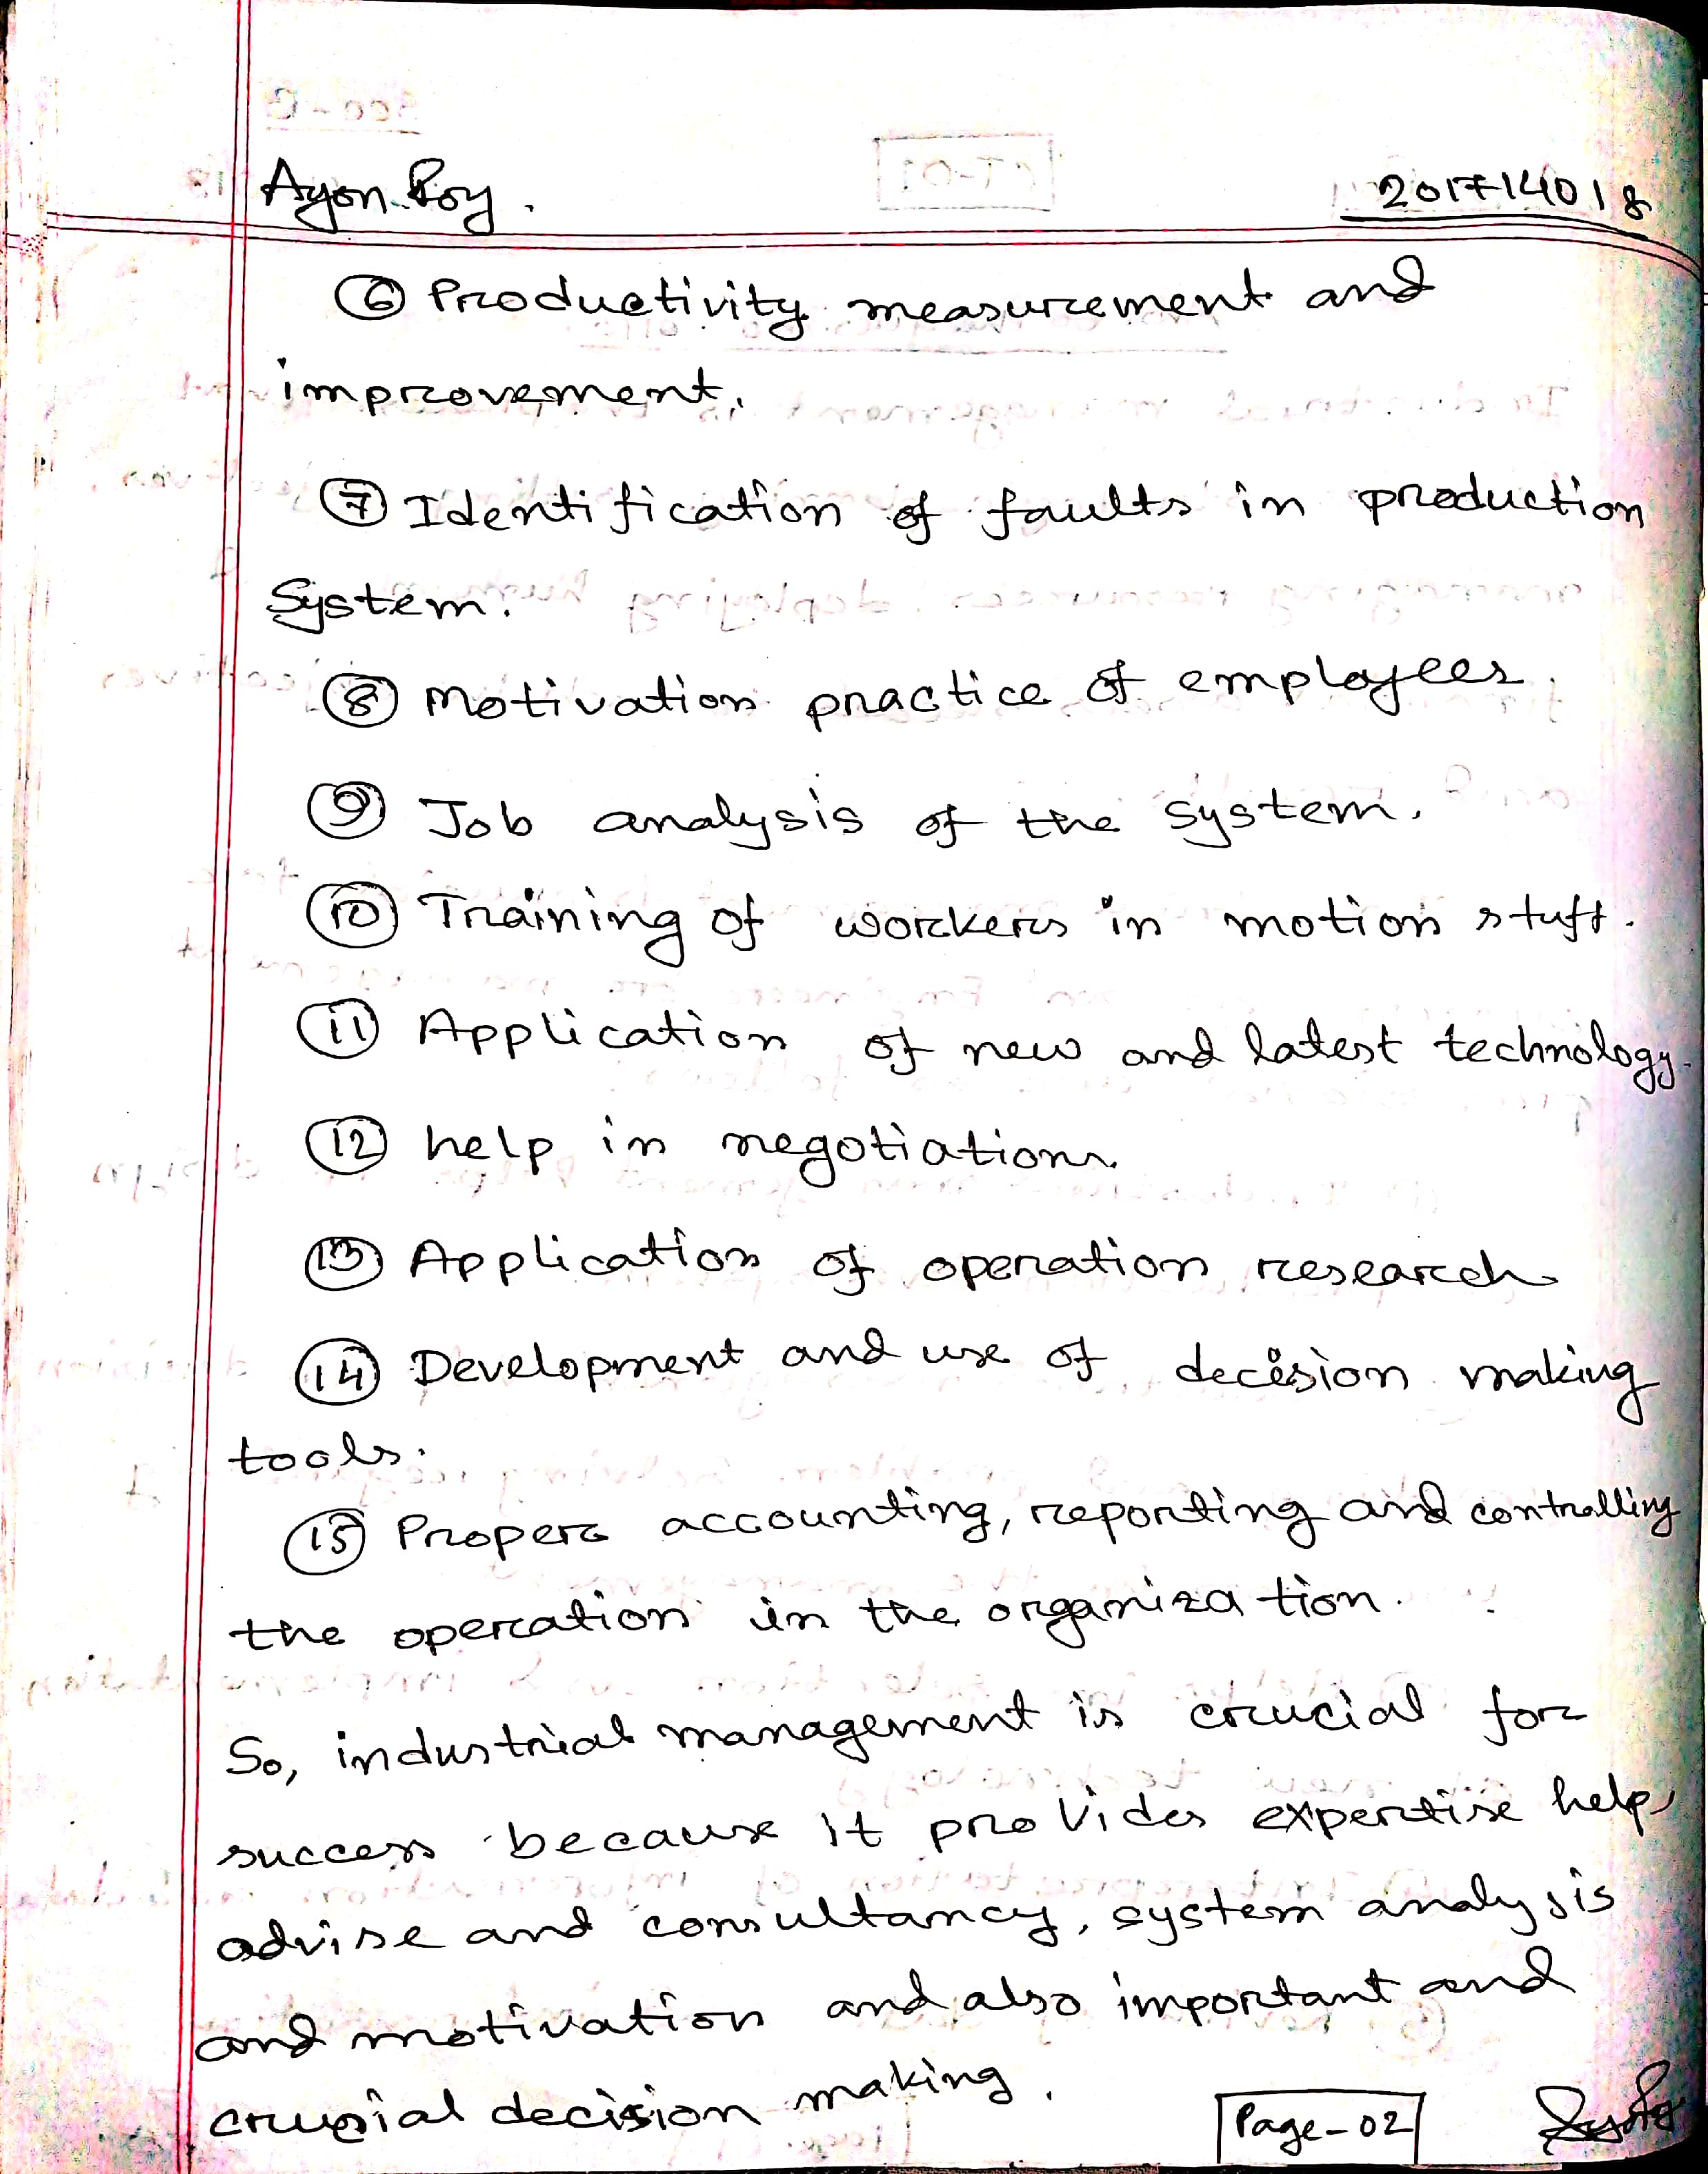 Ayon Roy. 201714018
⑥ Productivity measurement and
improvement.
⑦ Identification of faults in production
System.
⑧ Motivation practice of employees.
⑨ Job analysis of the system.
⑩ Training of workers in motion stuff.
⑪ Application of new and latest technology.
⑫ help in negotiations.
⑬ Application of operation research
⑭ Development and use of decision making
tools.
⑮ Proper accounting, reporting and controlling
the operation in the organization.
So, industrial management is crucial for
success because it provides expertise help,
advise and consultancy, system analysis
and motivation and also important and
crucial decision making.
Page-02